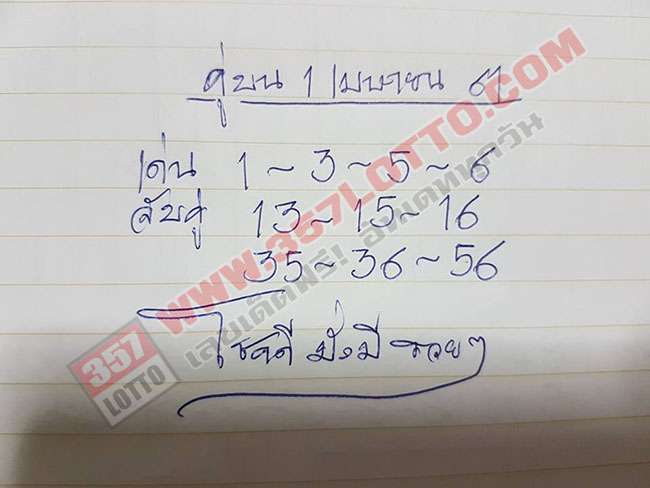 คู่บน 1 เมษายน 61
เด่น 1~3~5~6
จับคู่ 13~15~16
35~36~56
โชคดี มั่งมี รวยๆ
WWW.357LOTTO.COM
เลขเด็ดฟรี! อัพเดททุกวัน
357
LOTTO